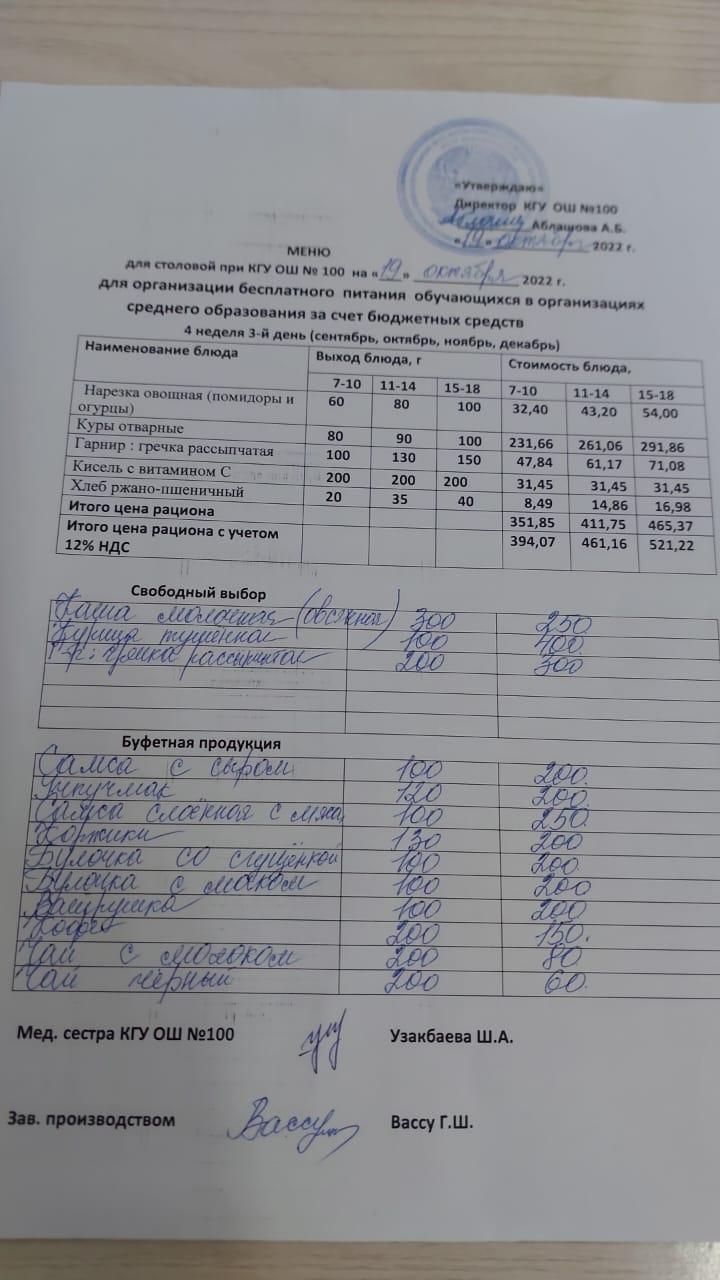 «Утверждаю»
Директор КГУ ОШ №100
Аблашова А.Б.
«19» октября 2022 г.
МЕНЮ
для столовой при КГУ ОШ № 100 на «19» октября 2022 г.
для организации бесплатного питания обучающихся в организациях
среднего образования за счет бюджетных средств
4 неделя 3-й день (сентябрь, октябрь, ноябрь, декабрь)
Наименование блюда Выход блюда, г Стоимость блюда,
7-10 11-14 15-18 7-10 11-14 15-18
Нарезка овощная (помидоры и 60 80 100 32,40 43,20 54,00
огурцы)
Куры отварные 80 90 100 231,66 261,06 291,86
Гарнир : гречка рассыпчатая 100 130 150 47,84 61,17 71,08
Кисель с витамином С 200 200 200 31,45 31,45 31,45
Хлеб ржано-пшеничный 20 35 40 8,49 14,86 16,98
Итого цена рациона 351,85 411,75 465,37
Итого цена рациона с учетом 394,07 461,16 521,22
12% НДС
Свободный выбор
Каша молочная (овсяная) 300 250
Курица тушенная 100 400
Гр: гречка рассыпчатая 200 300
Буфетная продукция
Самса с сыром 100 200
Учпучмак 120 200
Самса слоённая с мяса 100 250
Коржики 130 200
Булочка со сгущёнкой 100 200
Булочка с маком 100 200
Ватрушка 100 200
Кофе 200 150.
Чай с молоком 200 80
Чай чёрный 200 60.
Мед. сестра КГУ ОШ №100 Узакбаева Ш.А.
Зав. производством Вассу Вассу Г.Ш.